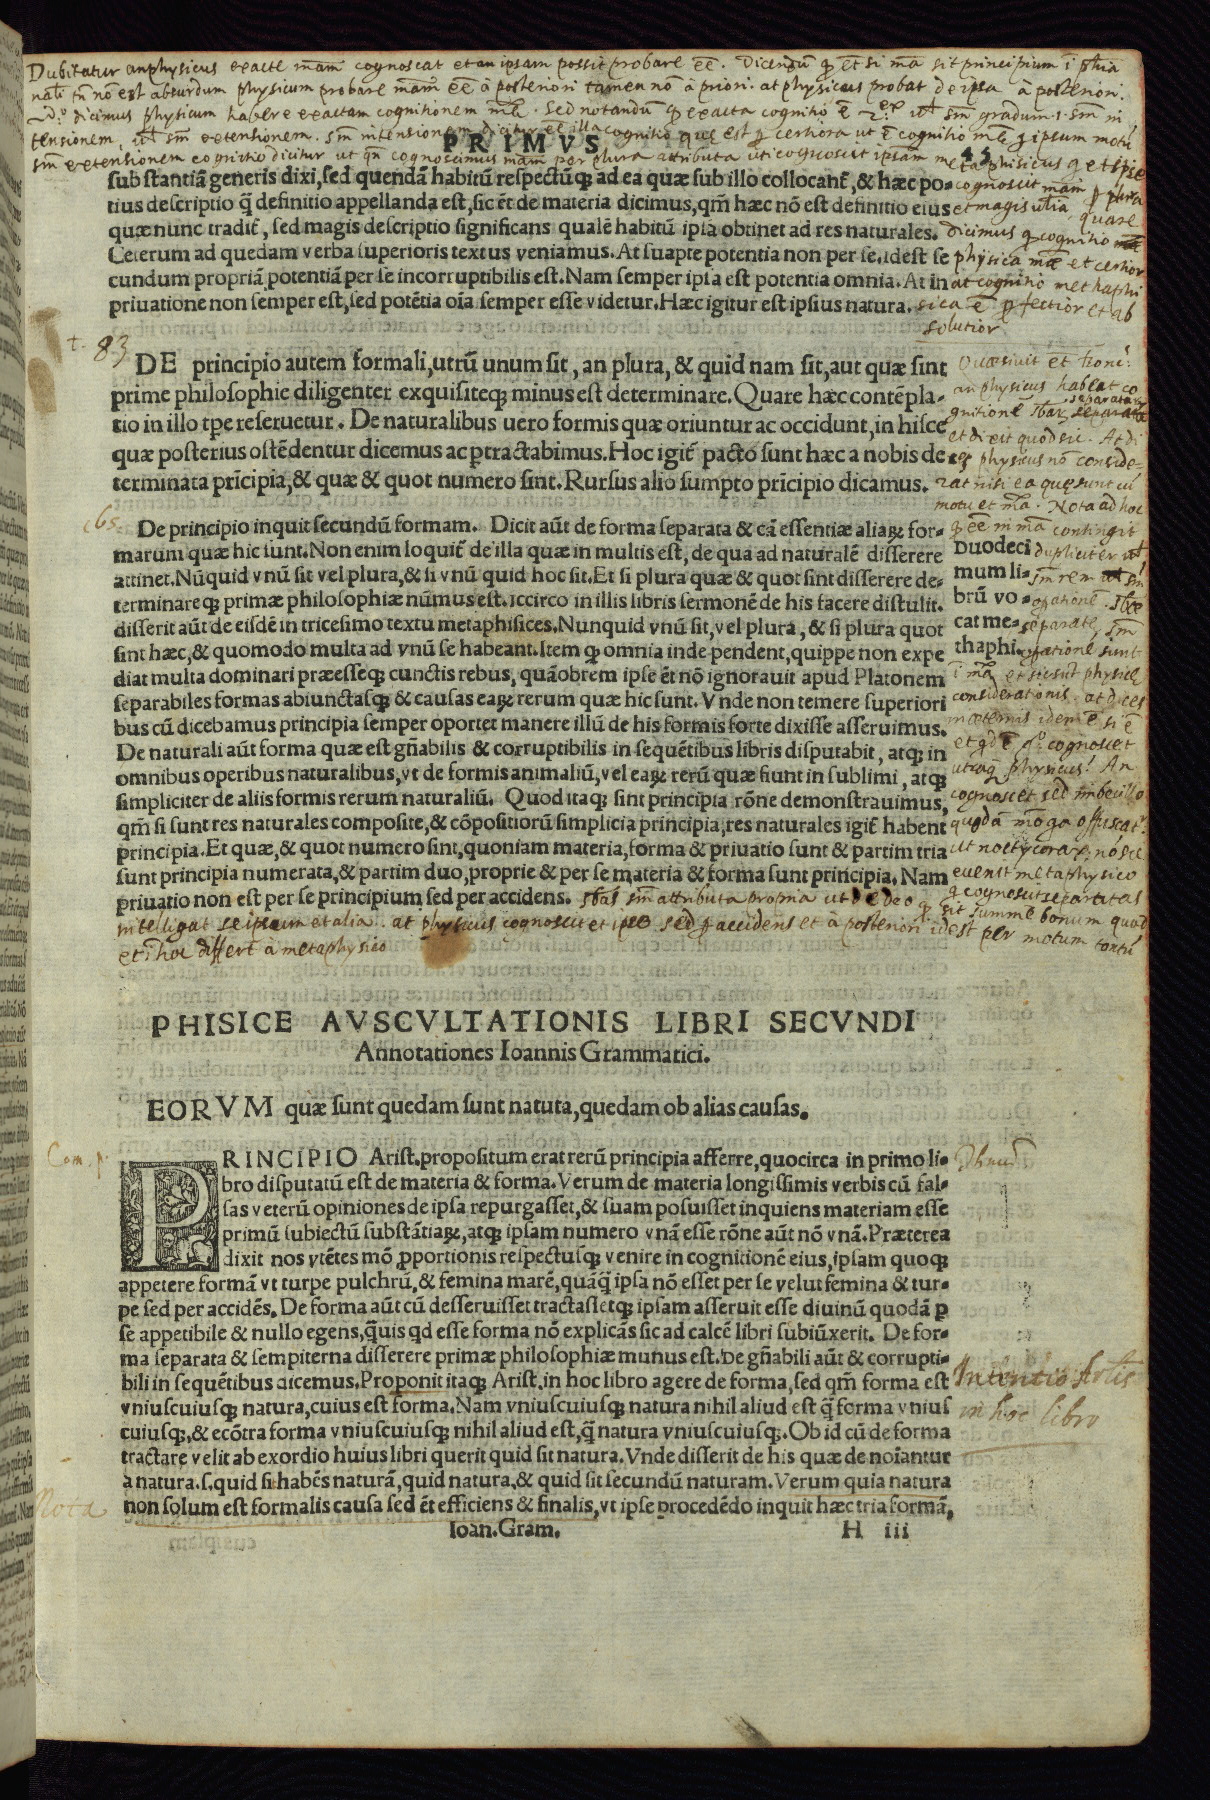 Dubitatur an physicus exacte mãm cognoscat et an ipsam possit probare ẽẽ. Dicendũ q̃ et si mã sit principium ĩ
nãli tñ nõ est absurdum physicum probare mãm ẽẽ à posteriori tamen nõ à priori. at physicus probat de ipsa à posteriori.
dicimus physicum habere exactam cognitionem mãe. Sed notandũ q̃ exacta cognitio ẽ sm̃ gradum sm̃ in
tensionem, sm̃ extensionem. sm̃ intensionem dicitur illa cognitio que est certiora ut ẽ cognitio ipsum motũ
sm̃ extensionem cognitio dicitur ut qñ cognoscimus mãm per plura attributa uti cognoscit ipsam metaphisicus
PRIMVS 45
substantiã generis dixi, sed quendã habitũ respectũq; ad ea quæ sub illo collocant̃, & hæc po-
tius descriptio q̃ definitio appellanda est, sic ẽt de materia dicimus, qm̃ hæc nõ est definitio eius
quæ nunc tradit̃, sed magis descriptio significans qualẽ habitũ ipsa obtinet ad res naturales.
Ceterum ad quedam verba superioris textus veniamus. At suapte potentia non per se. idest se
cundum propriã potentiã per se incorruptibilis est. Nam semper ipsa est potentia omnia. At in
priuatione non semper est, sed potẽtia oĩa semper esse videtur. Hæc igitur est ipsius natura.
cognoscit mãm plura
et magis quare
dicimus q̃ cognitio
physica mãe et certior
at cognitio methaphi
sica ẽ perfectior et ab
solutior
t. 83
DE principio autem formali, utrũ unum sit, an plura, & quid nam sit, aut quæ sint
prime philosophie diligenter exquisiteq; minus est determinare. Quare hæc contẽpla-
tio in illo tp̃e reseruetur. De naturalibus uero formis quæ oriuntur ac occidunt, in hisce
quæ posterius ostẽdentur dicemus ac ꝑtractabimus. Hoc igit̃ pacto sunt hæc a nobis de
terminata prĩcipia, & quæ & quot numero sint. Rursus alio sumpto prĩcipio dicamus.
Quæsiuit
an physicus habeat co
gnitionẽ separatarũ
et dixit quod sic. At di
ces physicus nõ conside-
rat nisi ea quę sunt cũ
motu et mã. Nota ad hoc
q̃ ẽẽ in mã contingit
dupliciter
c 65.
De principio inquit secundũ formam. Dicit aũt de forma separata & cã essentiæ aliaꝝ for-
marum quæ hic sunt. Non enim loquit̃ de illa quæ in multis est, de qua ad naturalẽ disserere
attinet. Nũquid vnũ sit vel plura, & si vnũ quid hoc sit. Et si plura quæ & quot sint disserere de-
terminareq; primæ philosophiæ nũmus est. Iccirco in illis libris sermonẽ de his facere distulit.
disserit aũt de eisdẽ in tricesimo textu metaphisices. Nunquid vnũ sit, vel plura, & si plura quot
sint hæc, & quomodo multa ad vnũ se habeant. Item q̃ omnia inde pendent, quippe non expe
diat multa dominari præesseq; cunctis rebus, quãobrem ipse ẽt nõ ignorauit apud Platonem
separabiles formas abiunctasq; & causas eaꝝ rerum quæ hic sunt. Vnde non temere superiori
bus cũ dicebamus principia semper oportet manere illũ de his formis forte dixisse asseruimus.
De naturali aũt forma quæ est gñabilis & corruptibilis in sequẽtibus libris disputabit, atq; in
omnibus operibus naturalibus, vt de formis animaliũ, vel eaꝝ rerũ quæ fiunt in sublimi, atq;
simpliciter de aliis formis rerum naturaliũ. Quod itaq; sint principia rõne demonstrauimus,
qm̃ si sunt res naturales composite, & cõpositiorũ simplicia principia, res naturales igit̃ habent
principia. Et quæ, & quot numero sint, quoniam materia, forma & priuatio sunt & partim tria
sunt principia numerata, & partim duo, proprie & per se materia & forma sunt principia. Nam
priuatio non est per se principium sed per accidens.
Duodeci
mum li-
brũ vo-
cat me-
thaphi.
sm̃ rem
separatę, sm̃
sunt
ĩ mã et sic sũt physicę
considerationis. at dices
in æternis idem ẽ
cognoscet
physicus? An
cognoscet sed imbecillo
quodã modo offuscat
euenit metaphysico
q̃ cognoscit separatas
sm̃ attributa propria ut de deo q̃ sit summe bonum quod
intelligat seipsum et alia. at physicus cognoscit et ipse sed ꝑ accidens et à posteriori idest per motum
et ĩ hoc differt à metaphysico
PHISICE AVSCVLTATIONIS LIBRI SECVNDI
Annotationes Ioannis Grammatici.
EORVM quæ sunt quedam sunt natuta, quedam ob alias causas.
Com. p.
PRINCIPIO Arist. propositum erat rerũ principia afferre, quocirca in primo li-
bro disputatũ est de materia & forma. Verum de materia longissimis verbis cũ fal-
sas veterũ opiniones de ipsa repurgasset, & suam posuisset inquiens materiam esse
primũ subiectũ substãtiaꝝ, atq; ipsam numero vnã esse rõne aũt nõ vnã. Præterea
dixit nos vtẽtes mõ ꝓportionis respectusq; venire in cognitionẽ eius, ipsam quoq;
appetere formã vt turpe pulchrũ, & femina marẽ, quãq̃ ipsa nõ esset per se velut femina & tur-
pe sed per accidẽs. De forma aũt cũ desseruisset tractassetq; ipsam asseruit esse diuinũ quodã ꝑ
se appetibile & nullo egens, q̃uis qd esse forma nõ explicãs sic ad calcẽ libri subiũxerit. De for-
ma separata & sempiterna disserere primæ philosophiæ munus est. De gñabili aũt & corrupti-
bili in sequẽtibus dicemus. Proponit itaq; Arist. in hoc libro agere de forma, sed qm̃ forma est
vniuscuiusq; natura, cuius est forma. Nam vniuscuiusq; natura nihil aliud est q̃ forma vnius
cuiusq;, & ecõtra forma vniuscuiusq; nihil aliud est, q̃ natura vniuscuiusq;. Ob id cũ de forma
tractare velit ab exordio huius libri querit quid sit natura. Vnde disserit de his quæ de noĩantur
a natura. s. quid sit habẽs naturã, quid natura, & quid sit secundũ naturam. Verum quia natura
non solum est formalis causa sed ẽt efficiens & finalis, vt ipse procedẽdo inquit hæc tria formã,
Intentio Artis
in hoc libro
Nota
Ioan. Gram. H iii